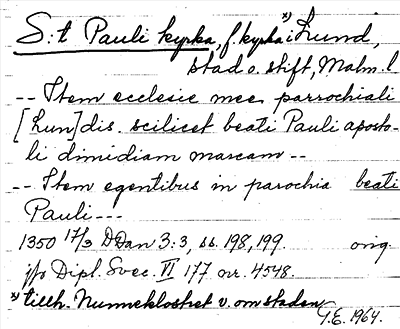 S:t Pauli kyrka, f. kyrka *) i Lund,
stad o. stift, Malm. l
-- Item ecclesie mee parrochiali
[Lun]dis. scilicet beati Pauli aposto-
li dimidiam marcam --
-- Item egentibus in parochia beati
Pauli ---
1350 17/3 DDan 3:3, ss. 198, 199. orig
jfr Dipl. Svec. VI 177 nr. 4548.
*) tillh. Nunneklostret v. om staden
G.E. 1964.